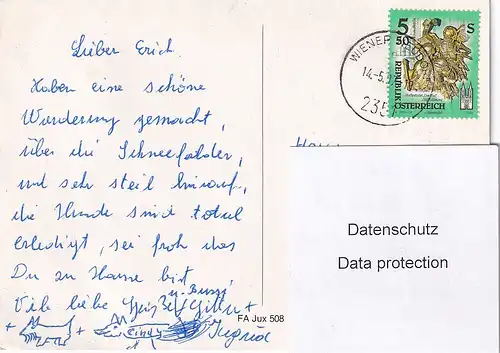 Lieber Erich.
Haben eine schöne
Wanderung gemacht,
über die Schneefelder,
und sehr steil hinauf,
die Hunde sind total
erledigt, sei froh das
Du zu Hause bist
u. Bussi
Viele liebe Grüße Gitta +
+ Cindy Ingrid
FA Jux 508
WIENER
14.-5.
235
5 S
50
REPUBLIK
ÖSTERREICH
Herrn
Datenschutz
Data protection